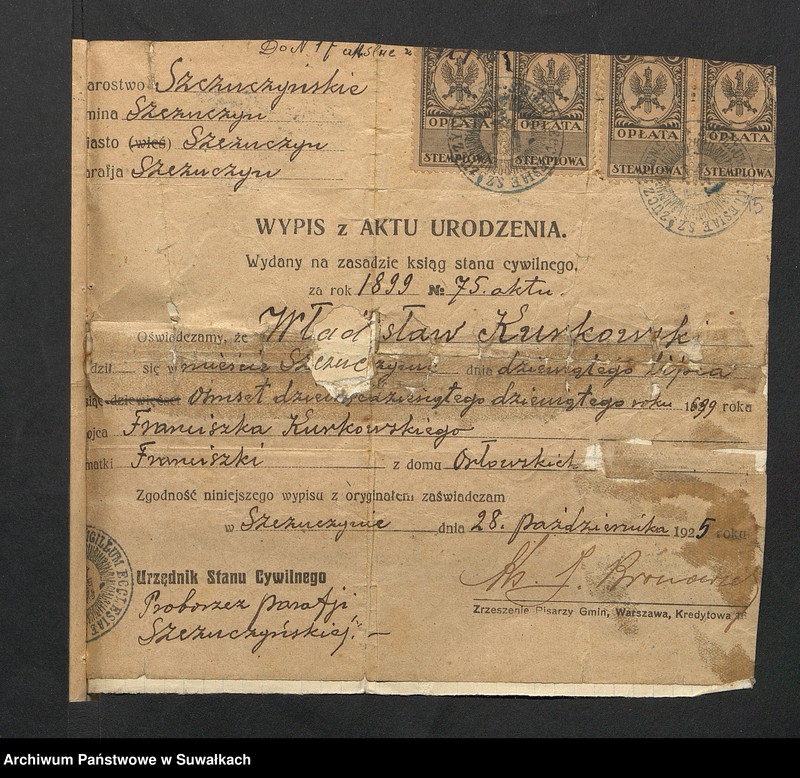 arostwo Szczuczyńskie
mina Szczuczyn
iasto (wieś) Szczuczyn
arafja Szczuczyn
OPŁATA STEMPLOWA
OPŁATA STEMPLOWA
OPŁATA STEMPLOWA
OPŁATA STEMPLOWA
15
WYPIS z AKTU URODZENIA.
Wydany na zasadzie ksiąg stanu cywilnego,
za rok 1899 № 75. aktu.
Oświadczamy, że Wład sław Kurkowski
dził się w mieście Szczuczynie dnia dziewiątego Lipca
siąc dziewięćset Ośmset dziewięćdziesiątego dziewiątego roku 1899 roku
ojca Franciszka Kurkowskiego
matki Franciszki z domu Orłowskich
Zgodność niniejszego wypisu z oryginałem zaświadczam
w Szczuczynie dnia 28. października 1925 roku
SIGILLUM ECCLESIAE
Urzędnik Stanu Cywilnego
Proboszcz parafji
Szczuczyńskiej. —
Ks. J.
Zrzeszenie Pisarzy Gmin, Warszawa, Kredytowa
Archiwum Państwowe w Suwałkach